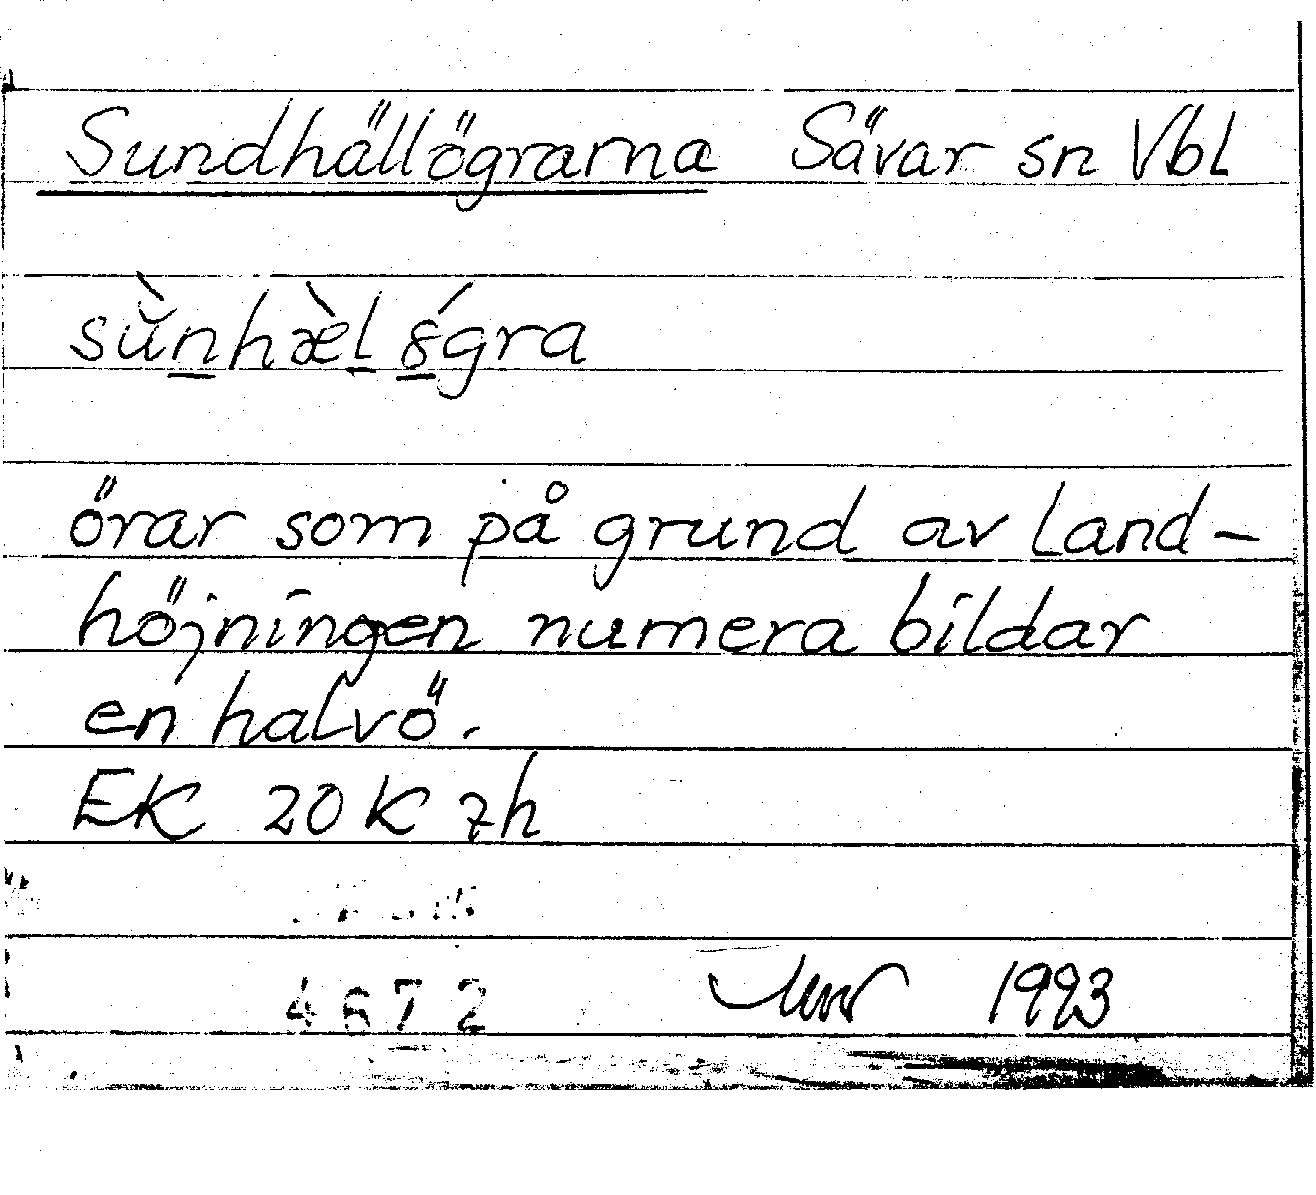 Sundhällögrarna Sävar sn Vbl
sùnhæ̀l ǿgra
örar som på grund av land-
höjningen numera bildar
en halvö.
EK 20K 7h
4672 1993